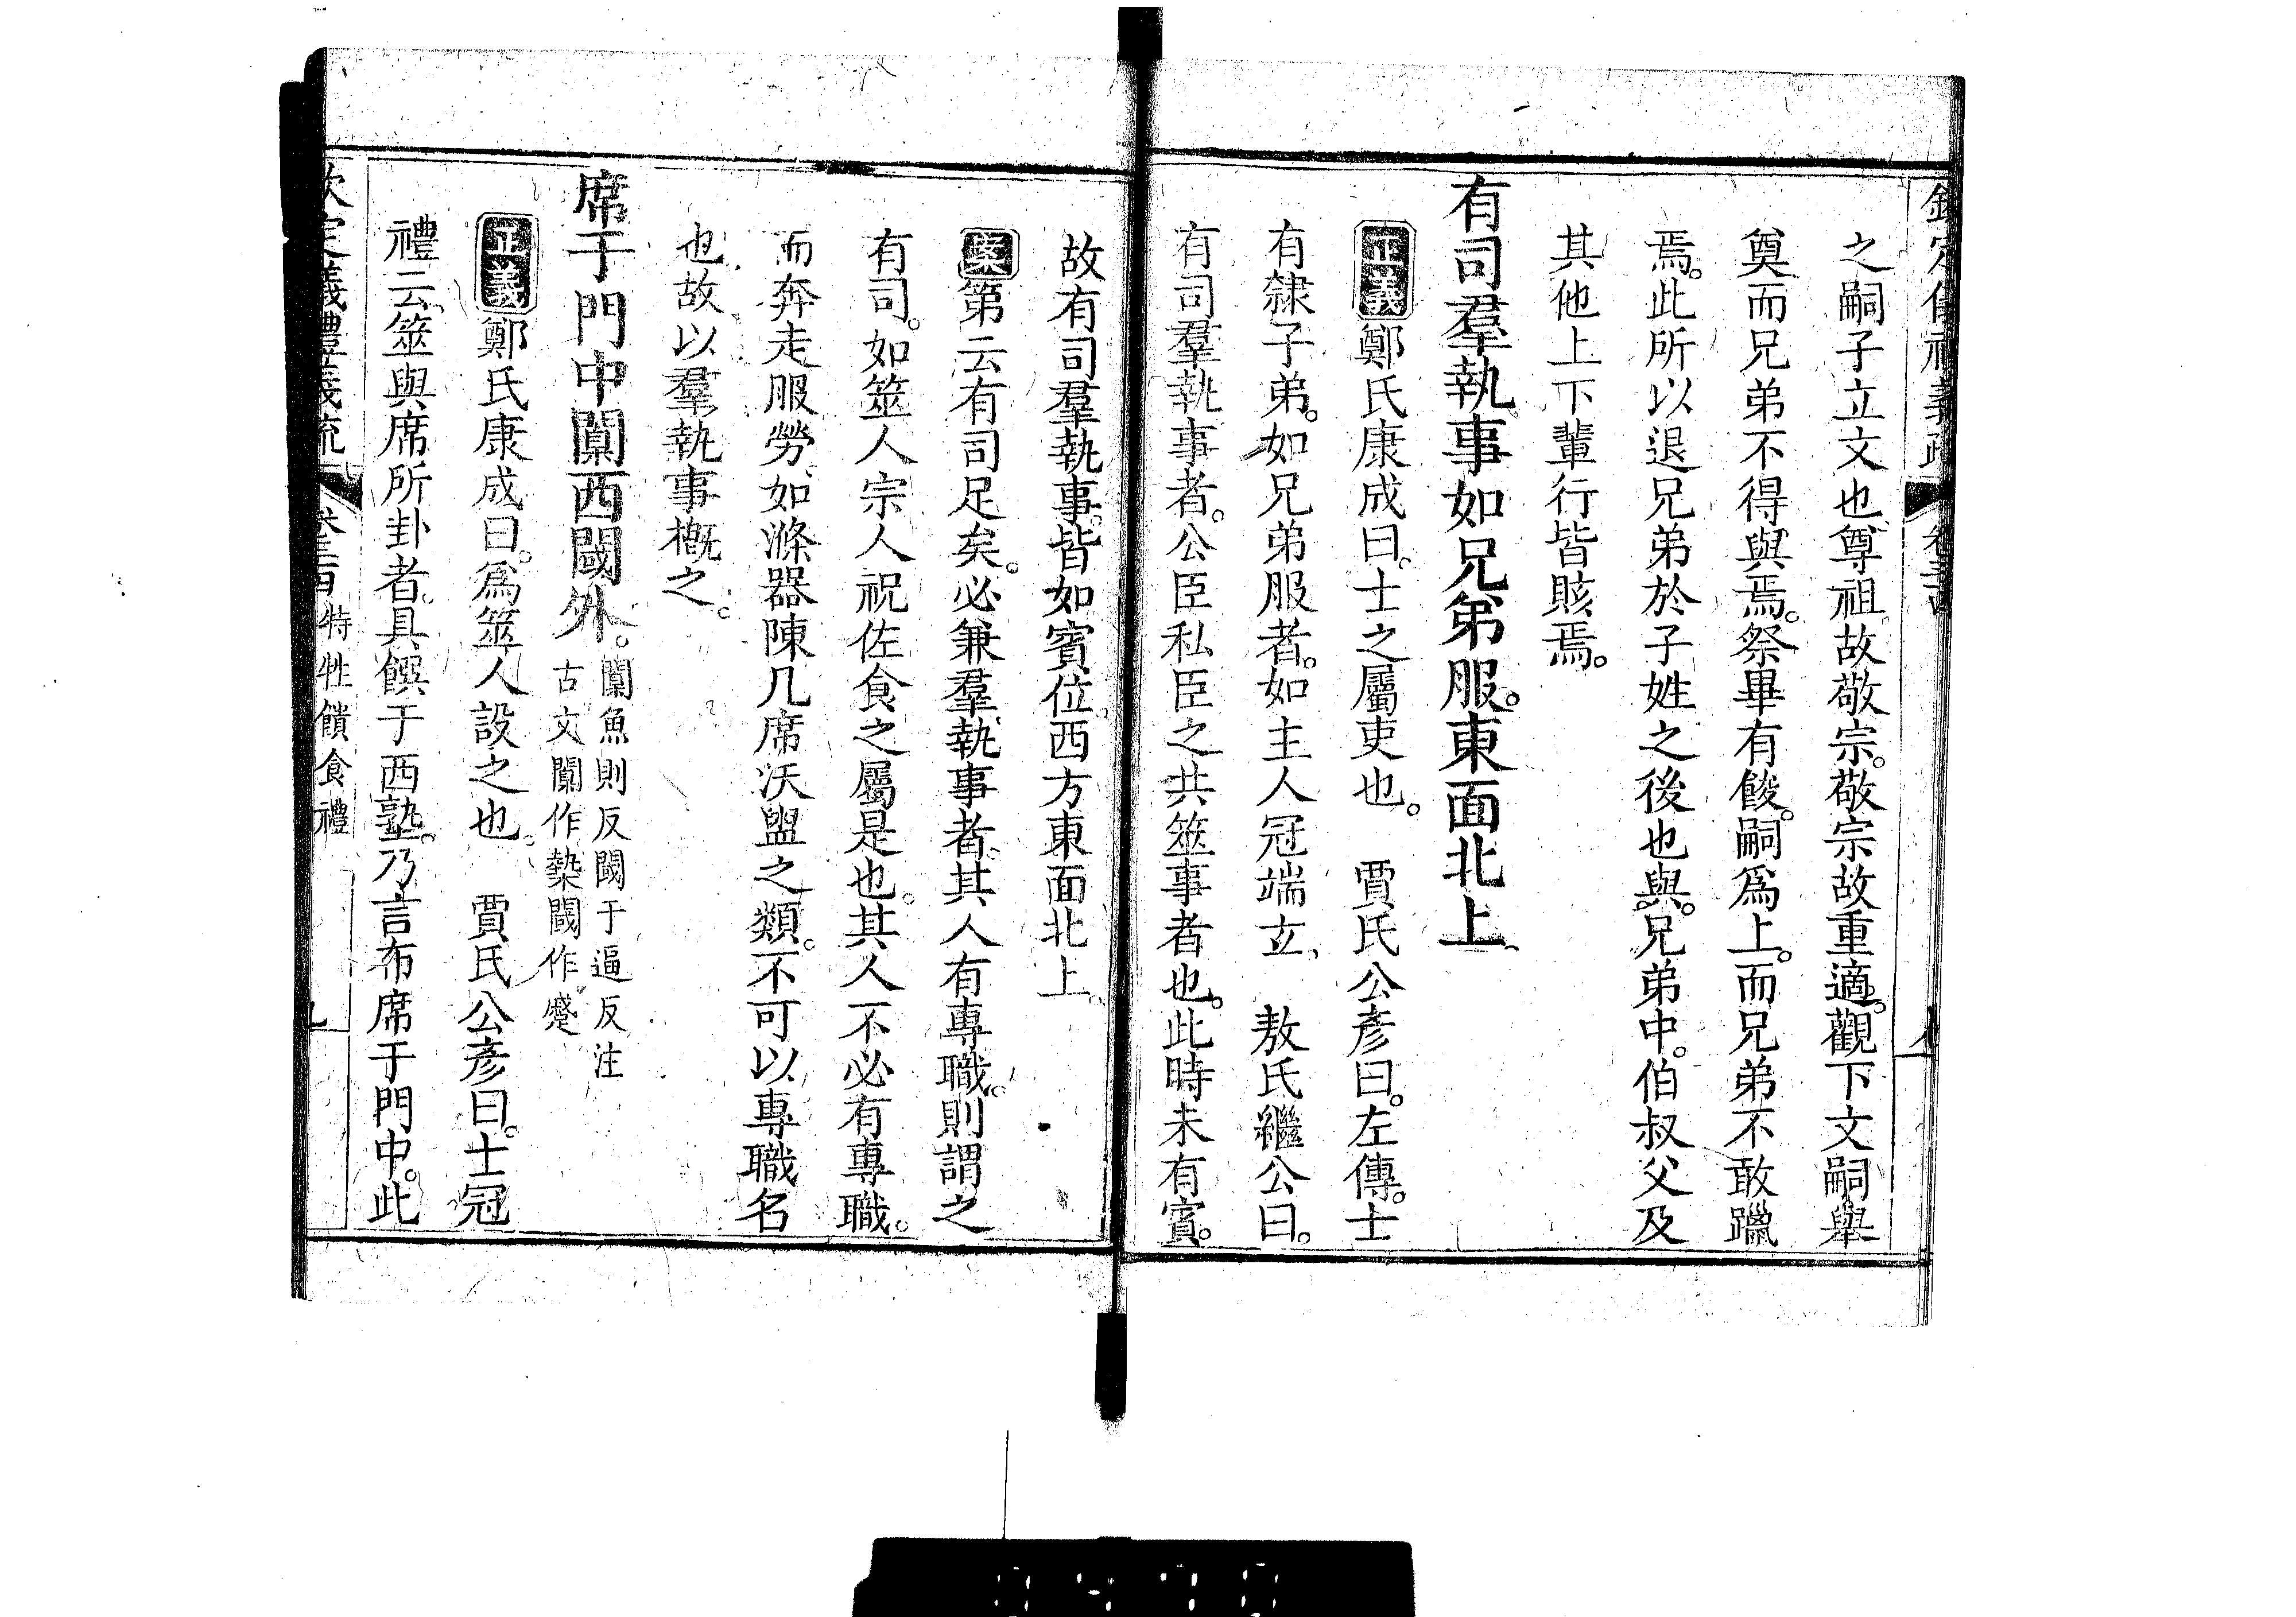 之嗣子立文也尊祖故敬宗。敬宗故重適。觀下文嗣舉
奠而兄弟不得與焉。祭畢有餕。嗣爲上。而兄弟不敢躐
焉。此所以退兄弟於子姓之後也與。兄弟中。伯叔父及
其他上下輩行皆賅焉。
有司羣執事如兄弟服。東面北上。
正義鄭氏康成曰。士之屬吏也。　賈氏公彥曰。左傳。士
有隸子弟。如兄弟服者。如主人冠端玄、　敖氏繼公曰。
有司羣執事者。公臣私臣之共筮事者也。此時未有賓。
故有司羣執事。皆如賓位西方東面北上。
案第云有司足矣。必兼羣執事者。其人有專職。則謂之
有司。如筮人宗人祝佐食之屬是也。其人不必有專職。
而奔走服勞、如滌器陳几席沃盥之類。不可以專職名
也故以羣執事概之。
席于門中闑西閾外。闑魚則反閾于逼反注
古文闑作槷閾作蹙
正義鄭氏康成曰。爲筮人設之也。　賈氏公彥曰。士冠
禮云筮與席所卦者。具饌于西塾。乃言布席于門中。此
欽定儀禮義疏　特牲饋食禮